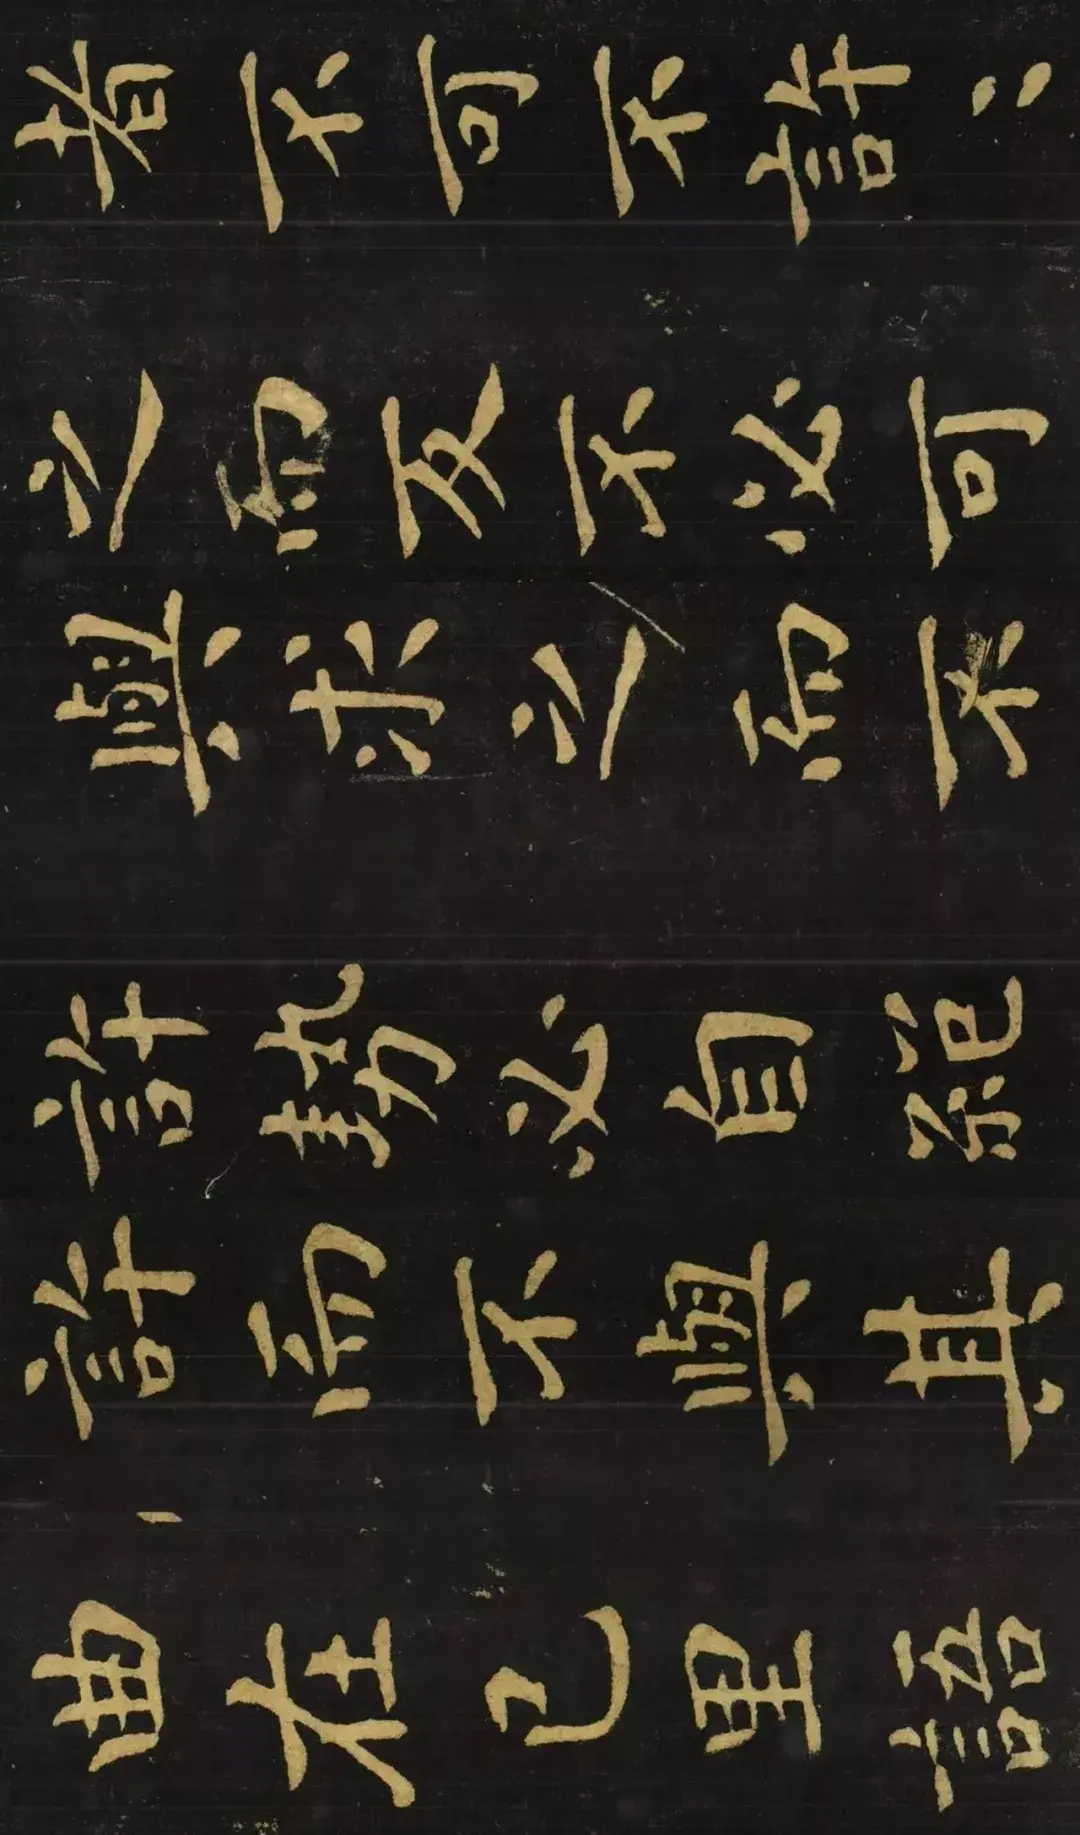 者不可不許〻
之而反不必可
與求之而不
許勢必自絕
許而不與其
曲在己里語